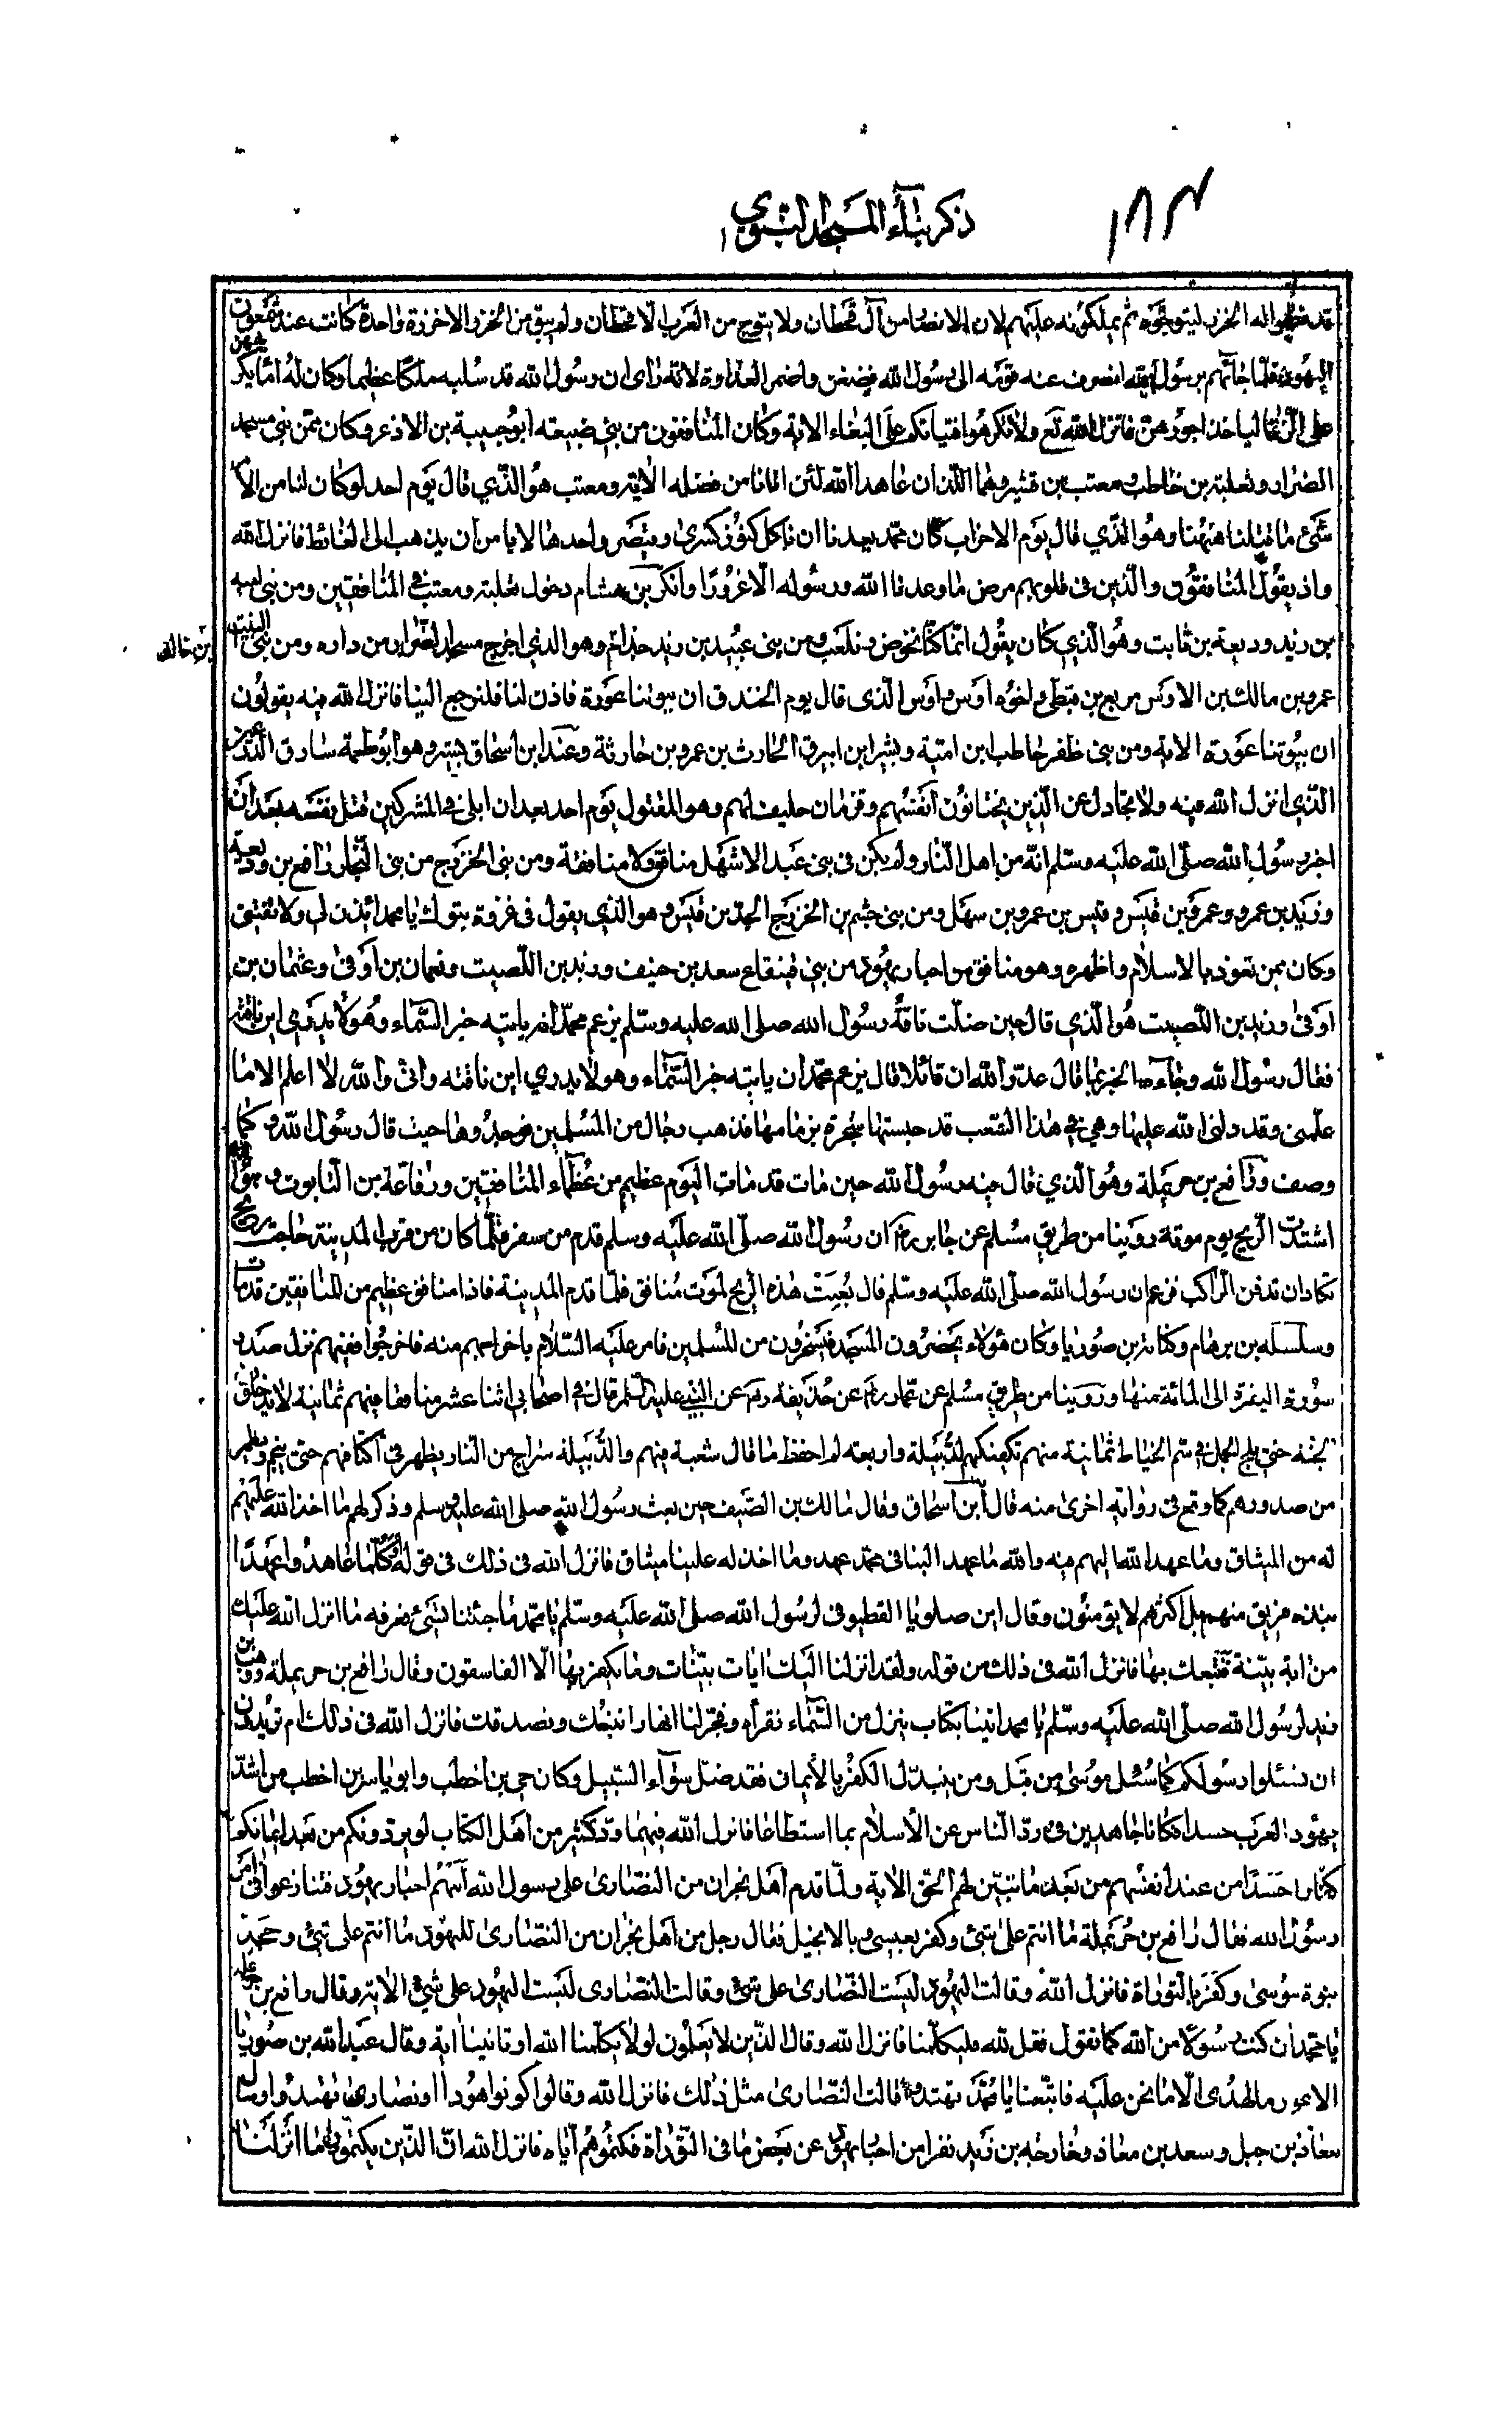 ١٨٣
ذكر بناء المسجد النبوي
قد نظموا له الخرز ليتوجوه ثم يملكونه عليهم لان الانصار من آل قحطان ولا يتوج من العرب الا قحطان ولم يبق من الخرز الا خرزة واحدة كانت عند شمعون
اليهودي فلما جائهم برسول الله انصرف عنه قومه الى رسول الله فضغن واضمر العداوة لانه رأى ان رسول الله قد سلبه ملكا عظيما وكان له اماء يكرههن
على الزنا لياخذ اجورهن فانزل الله تع ولا تكرهوا فتياتكم على البغاء الاية وكان المنافقون من بني ضبيعة ابو حبيبة بن الاذعر وكان ممن بنى مسجد
الضرار وثعلبة بن حاطب ومعتب بن قشير وهما اللذان عاهدا الله لئن اتانا من فضله الاية ومعتب هو الذي قال يوم احد لو كان لنا من الامر
شئ ما قتلنا ههنا وهو الذي قال يوم الاحزاب كان محمد يعدنا ان ناكل كنوز كسرى وقيصر واحدها لا يامن ان يذهب الى الغائط فانزل الله
واذ يقول المنافقون والذين فى قلوبهم مرض ما وعدنا الله ورسوله الا غرورا وانكر بن هشام دخول ثعلبة ومعتب في المنافقين ومن بني امية
بن زيد وديعة بن ثابت وهو الذي كان يقول انما كنا نخوض ونلعب ومن بنى عبيد بن زيد خذام وهو الذي اخرج مسجد الضرار من داره ومن بني النبيت
بن خالد
عمرو بن مالك بن الاوس مربع بن قيظي واخوه اوس واوس الذى قال يوم الخندق ان بيوتنا عورة فاذن لنا فلنرجع اليها فانزل الله فيه يقولون
ان بيوتنا عورة الاية ومن بنى ظفر حاطب ابن امية وبشير ابن ابيرق الحارث بن عمرو بن حارثة وعند ابن اسحاق بشير وهو ابو طعمة سارق الدرعين
الذي انزل الله فيه ولا تجادل عن الذين يختانون انفسهم وقزمان حليف لهم وهو المقتول يوم احد بعد ان ابلى في المشركين قتل نفسه بعد ان
اخبر رسول الله صلى الله عليه وسلم انه من اهل النار ولم يكن فى بنى عبد الاشهل منافق ولا منافقة ومن بنى الخزرج من بنى النجار رافع بن وديعة
وزيد بن عمرو وعمرو بن قيس وقيس بن عمرو بن سهل ومن بنى جشم بن الخزرج الجد بن قيس وهو الذي يقول فى غزوة تبوك يا محمد ائذن لى ولا تفتنى
وكان ممن تعوذ بالاسلام واظهره وهو منافق من احبار يهود من بني قينقاع سعد بن حنيف وزيد بن اللصيت ونعمان بن اوفى وعثمان بن
اوفى وزيد بن اللصيت هو الذي قال حين ضلت ناقة رسول الله صلى الله عليه وسلم يزعم محمد انه ياتيه خبر السماء وهو لا يدري اين ناقته
فقال رسول الله وجاءه الخبر بما قال عدو الله ان قائلا قال يزعم محمد ان ياتيه خبر السماء وهو لا يدري اين ناقته وانى والله لا اعلم الا ما
علمنى وقد دلنى الله عليها وهي في هذا الشعب قد حبستها شجرة بزمامها فذهب رجال من المسلمين فوجدوها حيث قال رسول الله وكما
وصف ورافع بن حريملة وهو الذي قال فيه رسول الله حين مات قد مات اليوم عظيم من عظماء المنافقين ورفاعة بن التابوت وهو
اشتدت الريح يوم موته روينا من طريق مسلم عن جابر رض ان رسول الله صلى الله عليه وسلم قدم من سفر فلما كان من قرب المدينة هاجت ريح
تكاد ان تدفن الراكب فزعم ان رسول الله صلى الله عليه وسلم قال بعثت هذه الريح لموت منافق فلما قدم المدينة فاذا منافق عظيم من المنافقين قد مات
وسلسلة بن برهام وكنانة بن صوريا وكان هؤلاء يحضرون المسجد فيسخرون من المسلمين فامر عليه السلام باخراجهم منه فاخرجوا ففيهم نزل صدر
سورة البقرة الى المائة منها وروينا من طريق مسلم عن عمار رض عن حذيفة رض عن النبي عليه السلم قال في اصحابى اثنا عشر منافقا فيهم ثمانية لا يدخلون
الجنة حتى يلج الجمل في سم الخياط ثمانية منهم تكفيكهم الدبيلة واربعة لم احفظ ما قال شعبة فيهم والدبيلة سراج من النار يظهر في اكتافهم حتى ينجم ويظهر
من صدورهم كما وقع فى رواية اخرى منه قال ابن اسحاق وقال مالك بن الضيف حين بعث رسول الله صلى الله عليه وسلم وذكر لهم ما اخذ الله عليهم
له من الميثاق وما عهد الله اليهم فيه والله ما عهد الينا فى محمد عهد وما اخذ له علينا ميثاق فانزل الله فى ذلك فى قوله أوكلما عاهدوا عهدا
نبذه فريق منهم بل اكثرهم لا يؤمنون وقال ابن صلوبا القطيونى لرسول الله صلى الله عليه وسلم يا محمد ما جئتنا بشئ نعرفه ما انزل الله عليك
من آية بينة فنتبعك بها فانزل الله فى ذلك من قوله ولقد انزلنا اليك ايات بينات وما يكفر بها الا الفاسقون وقال رافع بن حريملة ووهب بن
زيد لرسول الله صلى الله عليه وسلم يا محمد اتينا بكتاب ينزل من السماء نقرأه وفجر لنا انهارا نتبعك ونصدقك فانزل الله فى ذلك ام تريدون
ان تسئلوا رسولكم كما سئل موسى من قبل ومن يتبدل الكفر بالايمان فقد ضل سواء السبيل وكان حي بن اخطب وابو ياسر بن اخطب من اشد
يهود العرب حسدا فكانا جاهدين في رد الناس عن الاسلام بما استطاعا فانزل الله فيهما ود كثير من اهل الكتاب لو يردونكم من بعد ايمانكم
كفارا حسدا من عند انفسهم من بعد ما تبين لهم الحق الاية ولما قدم اهل نجران من النصارى على رسول الله اتتهم احبار يهود فتنازعوا
رسول الله فقال رافع بن حريملة ما انتم على شئ وكفر بعيسى وبالانجيل فقال رجل من اهل نجران من النصارى لليهود ما انتم على شئ وجحد
نبوة موسى وكفر بالتوراة فانزل الله وقالت اليهود ليست النصارى على شئ وقالت النصارى ليست اليهود على شئ الاية وقال رافع بن حريملة
يا محمد ان كنت رسولا من الله كما تقول فقل لله فليكلمنا فانزل الله وقال الذين لا يعلمون لولا يكلمنا الله او تاتينا آية وقال عبد الله بن صوريا
الاعور ما الهدى الا ما نحن عليه فاتبعنا يا محمد تهتد وقالت النصارى مثل ذلك فانزل الله وقالوا كونوا هودا او نصارى تهتدوا وسأل
معاذ بن جبل وسعد بن معاذ وخارجة بن زيد نفرا من احبار يهود عن بعض ما فى التوراة فكتموهم اياه فانزل الله ان الذين يكتمون ما انزلنا